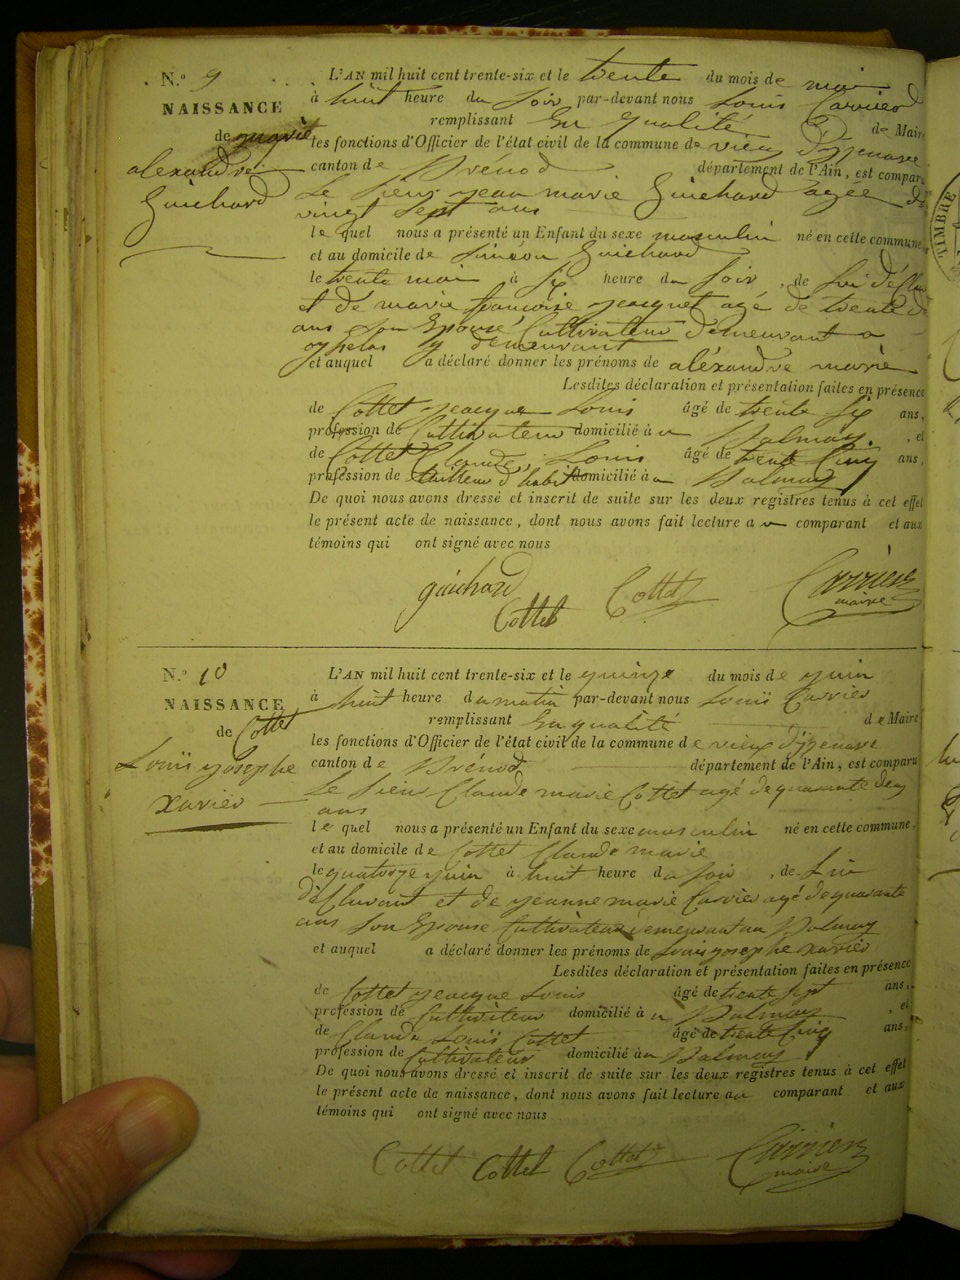 N.º 9
NAISSANCE
de marie
alexandre
Guichard
L'AN mil huit cent trente-six et le trente du mois de mai
à huit heure du soir par-devant nous Louis Carrier
remplissant En qualité de Maire
les fonctions d'Officier de l'état civil de la commune de vieu d'izenave
canton de Brénod département de l'Ain, est comparu
Le sieur jean marie Guichard agée de
vingt sept ans
le quel nous a présenté un Enfant du sexe masculin né en cette commune,
et au domicile de Siméon Guichard
le trente mai à six heure du soir, de lui déclar
et de marie françoise jacquet agé de trente
ans son Epouse Cultivateur demeurant a
y demeurant
et auquel a déclaré donner les prénoms de aléxandre marie
Lesdites déclaration et présentation faites en présence
de Cottet jeacque Louis âgé de trente six ans,
profession de Cultivateur domicilié à Balmay, et
de Cottet Claude, Louis âgé de trente Cinq ans,
profession de tailleur d'habit domicilié à Balmay
De quoi nous avons dressé et inscrit de suite sur les deux registres tenus à cet effet
le présent acte de naissance, dont nous avons fait lecture au comparant et aux
témoins qui ont signé avec nous
guichard Cottet Cottet Carrier
maire
N.º 10
NAISSANCE
de Cottet
Louis josephe
xavier
L'AN mil huit cent trente-six et le quinze du mois de juin
à huit heure du matin par-devant nous Louis Carrier
remplissant En qualité de Maire
les fonctions d'Officier de l'état civil de la commune de vieu d'izenave
canton de Brénod département de l'Ain, est comparu
Le sieur Claude marie Cottet agé de quarante deux
ans
le quel nous a présenté un Enfant du sexe masculin né en cette commune,
et au domicile de Cottet Claude marie
le quatorze juin à huit heure du soir, de Lui
déClurant et de jeanne marie Carrier agé de quarante
ans son Epouse Cultivateur demeurant au Balmay
et auquel a déclaré donner les prénoms de Louis josephe xavier
Lesdites déclaration et présentation faites en présence
de Cottet jeacque Louis âgé de trente sept ans,
profession de Cultivateur domicilié à Balmay, et
de Claude Louis Cottet âgé de trente Cinq ans,
profession de Cultivateur domicilié à Balmay
De quoi nous avons dressé et inscrit de suite sur les deux registres tenus à cet effet
le présent acte de naissance, dont nous avons fait lecture au comparant et aux
témoins qui ont signé avec nous
Cottet Cottet Cottet Carrier
maire
TIMBRE